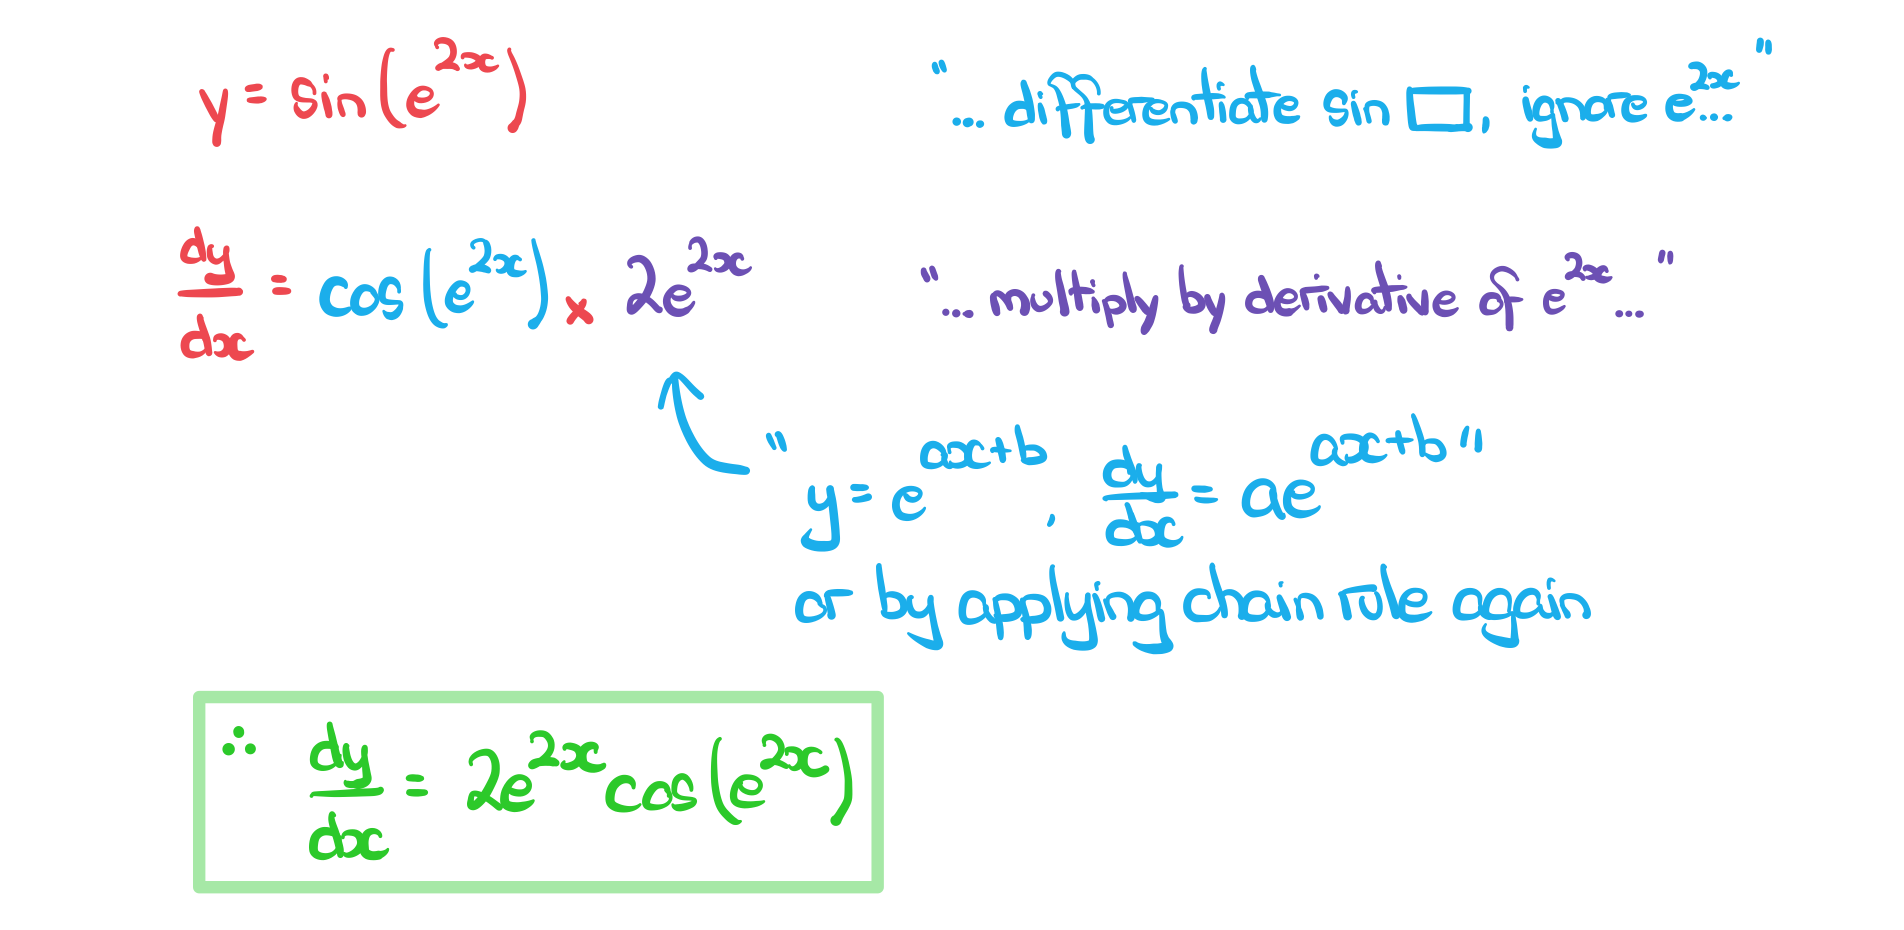 y = sin(e^{2x}) "... differentiate sin □, ignore e^{2x}..."
dy/dx = cos(e^{2x}) × 2e^{2x} "... multiply by derivative of e^{2x}..."
"y = e^{ax+b}, dy/dx = ae^{ax+b}"
or by applying chain rule again
∴ dy/dx = 2e^{2x}cos(e^{2x})